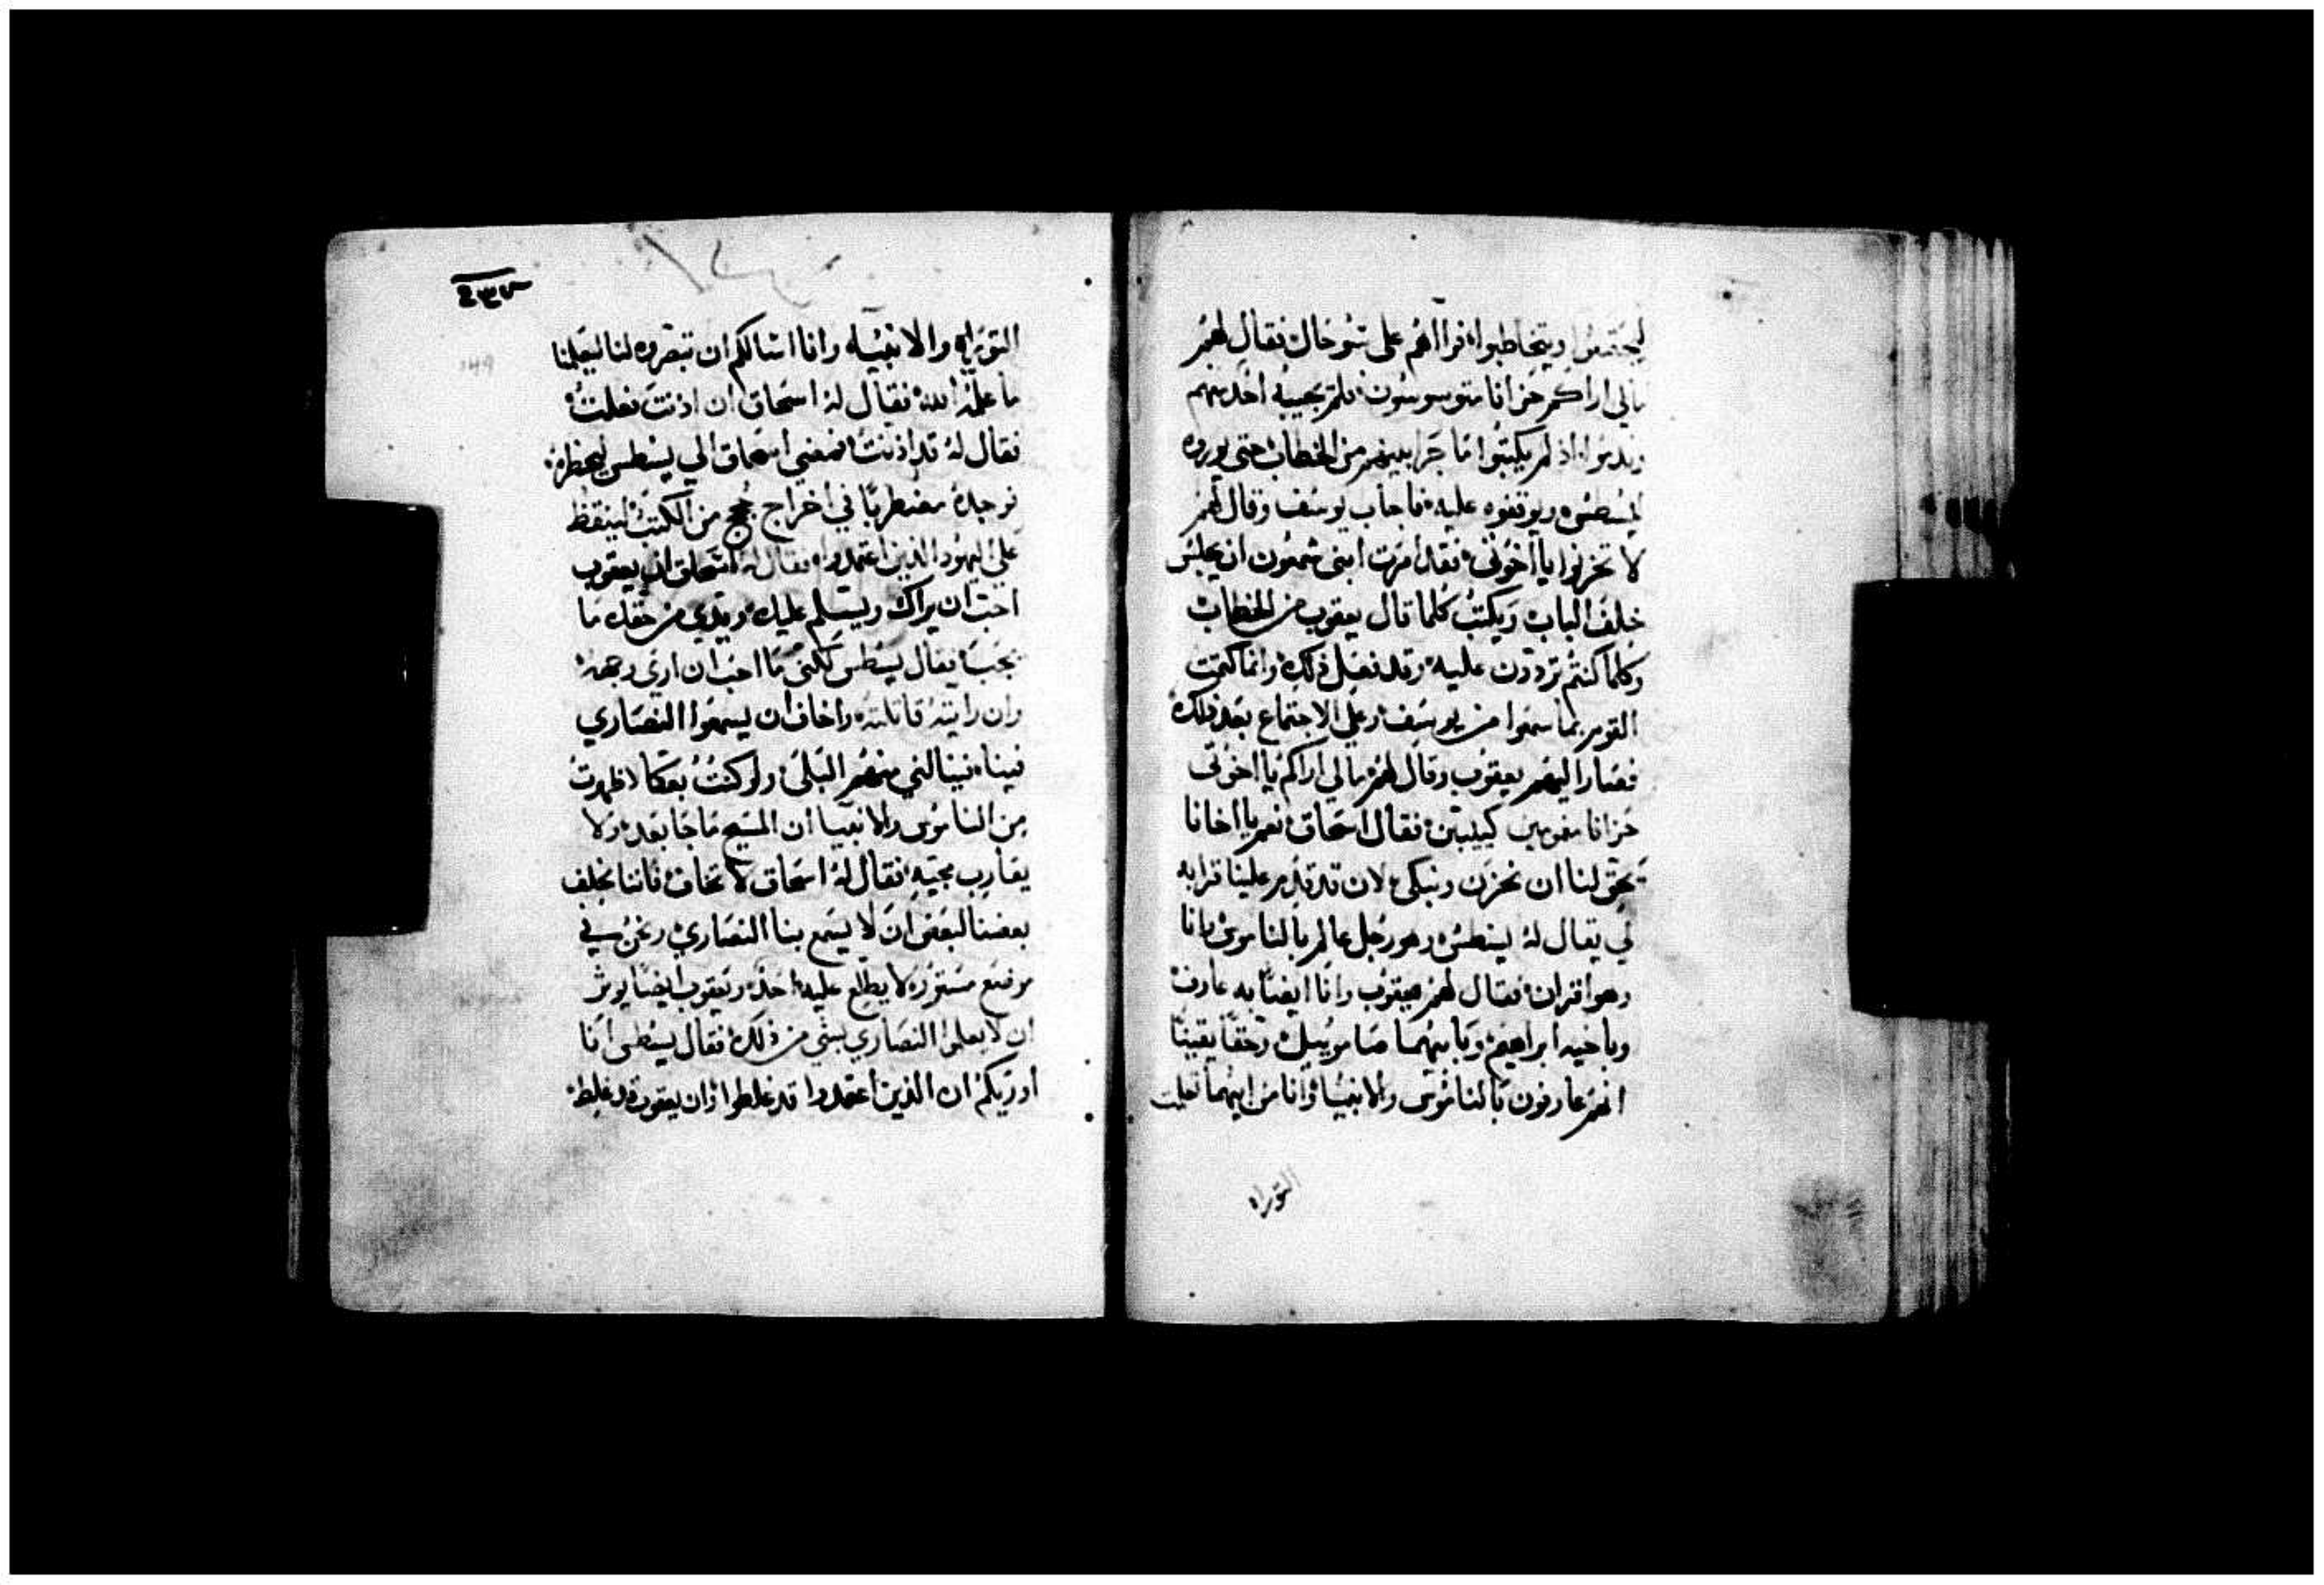 ليجتمعوا ويتخاطبوا، فراآهم على سو حال، فقال لهم
مالي اراكم حزانا متوسوسون، فلم يجيبه احد منهم
وندموا، اذ لم يكتبوا ما جرا بينهم من الخطاب حتى يوروه
ليسطس، ويوقفوه عليه، فاجاب يوسف وقال لهم
لا تحزنوا يا اخوتى، فقد امرت ابنى شمعون ان يجلس
خلف الباب، ويكتب كلما قال يعقوب من الخطاب
وكلما كنتم تردون عليه، وقد فعل ذلك،
القوم بما سمعوا من يوسف، وعلى الاجتماع بعد ذلك
فصار اليهم يعقوب وقال لهم، مالي اراكم يا اخوتى
حزانا كييبين، فقال اسحاق، نعم يا اخانا
يحق لنا ان نحزن ونبكى، لان قد قدم علينا قرابه
لي يقال له يسطس، وهو رجل عالم بالناموس، وانا
وهو اقران، فقال لهم يعقوب وانا ايضا به عارف
وباخيه ابراهيم، وبابيهما صامويل، وحقا يقينا
انهم عارفون بالناموس والانبيا، وانا من ابيهما تعلمت
التوراه
٤٣٧
149
التوراه والانبيا، وانا اسالكم ان تبصروه لنا ليعلمنا
ما علمه الله، فقال له اسحاق ان اذنت فعلت،
فقال له قد اذنت، فمضى اسحاق الي يسطس ليحظره،
فوجده مضطربا في اخراج حجج من الكتب،
على اليهود الذين اعتمدوا، فقال له اسحاق ان يعقوب
احب ان يراك ويسلم عليك، ويدي من حقك ما
يجب، فقال يسطس لكنى ما احب ان ارى وجهه،
وان رايته قاتلته، واخاف ان يسمعوا النصاري
فينا، فينالني منهم البلى، ولو كنت بعكا لاظهرت
من الناموس والانبيا ان المسيح ما جا بعد، ولا
يقارب مجيه، فقال له اسحاق لا تخاف، فاننا نحلف
بعضنا لبعض ان لا يسمع بنا النصاري، ونحن في
موضع مستور، لا يطلع عليه احد، ويعقوب ايضا يوثر
ان لا يعلموا النصاري بشي من ذلك، فقال يسطس انا
اوريكم ان الذين اعتمدوا قد غلطوا، وان يعقوب قد غلط،